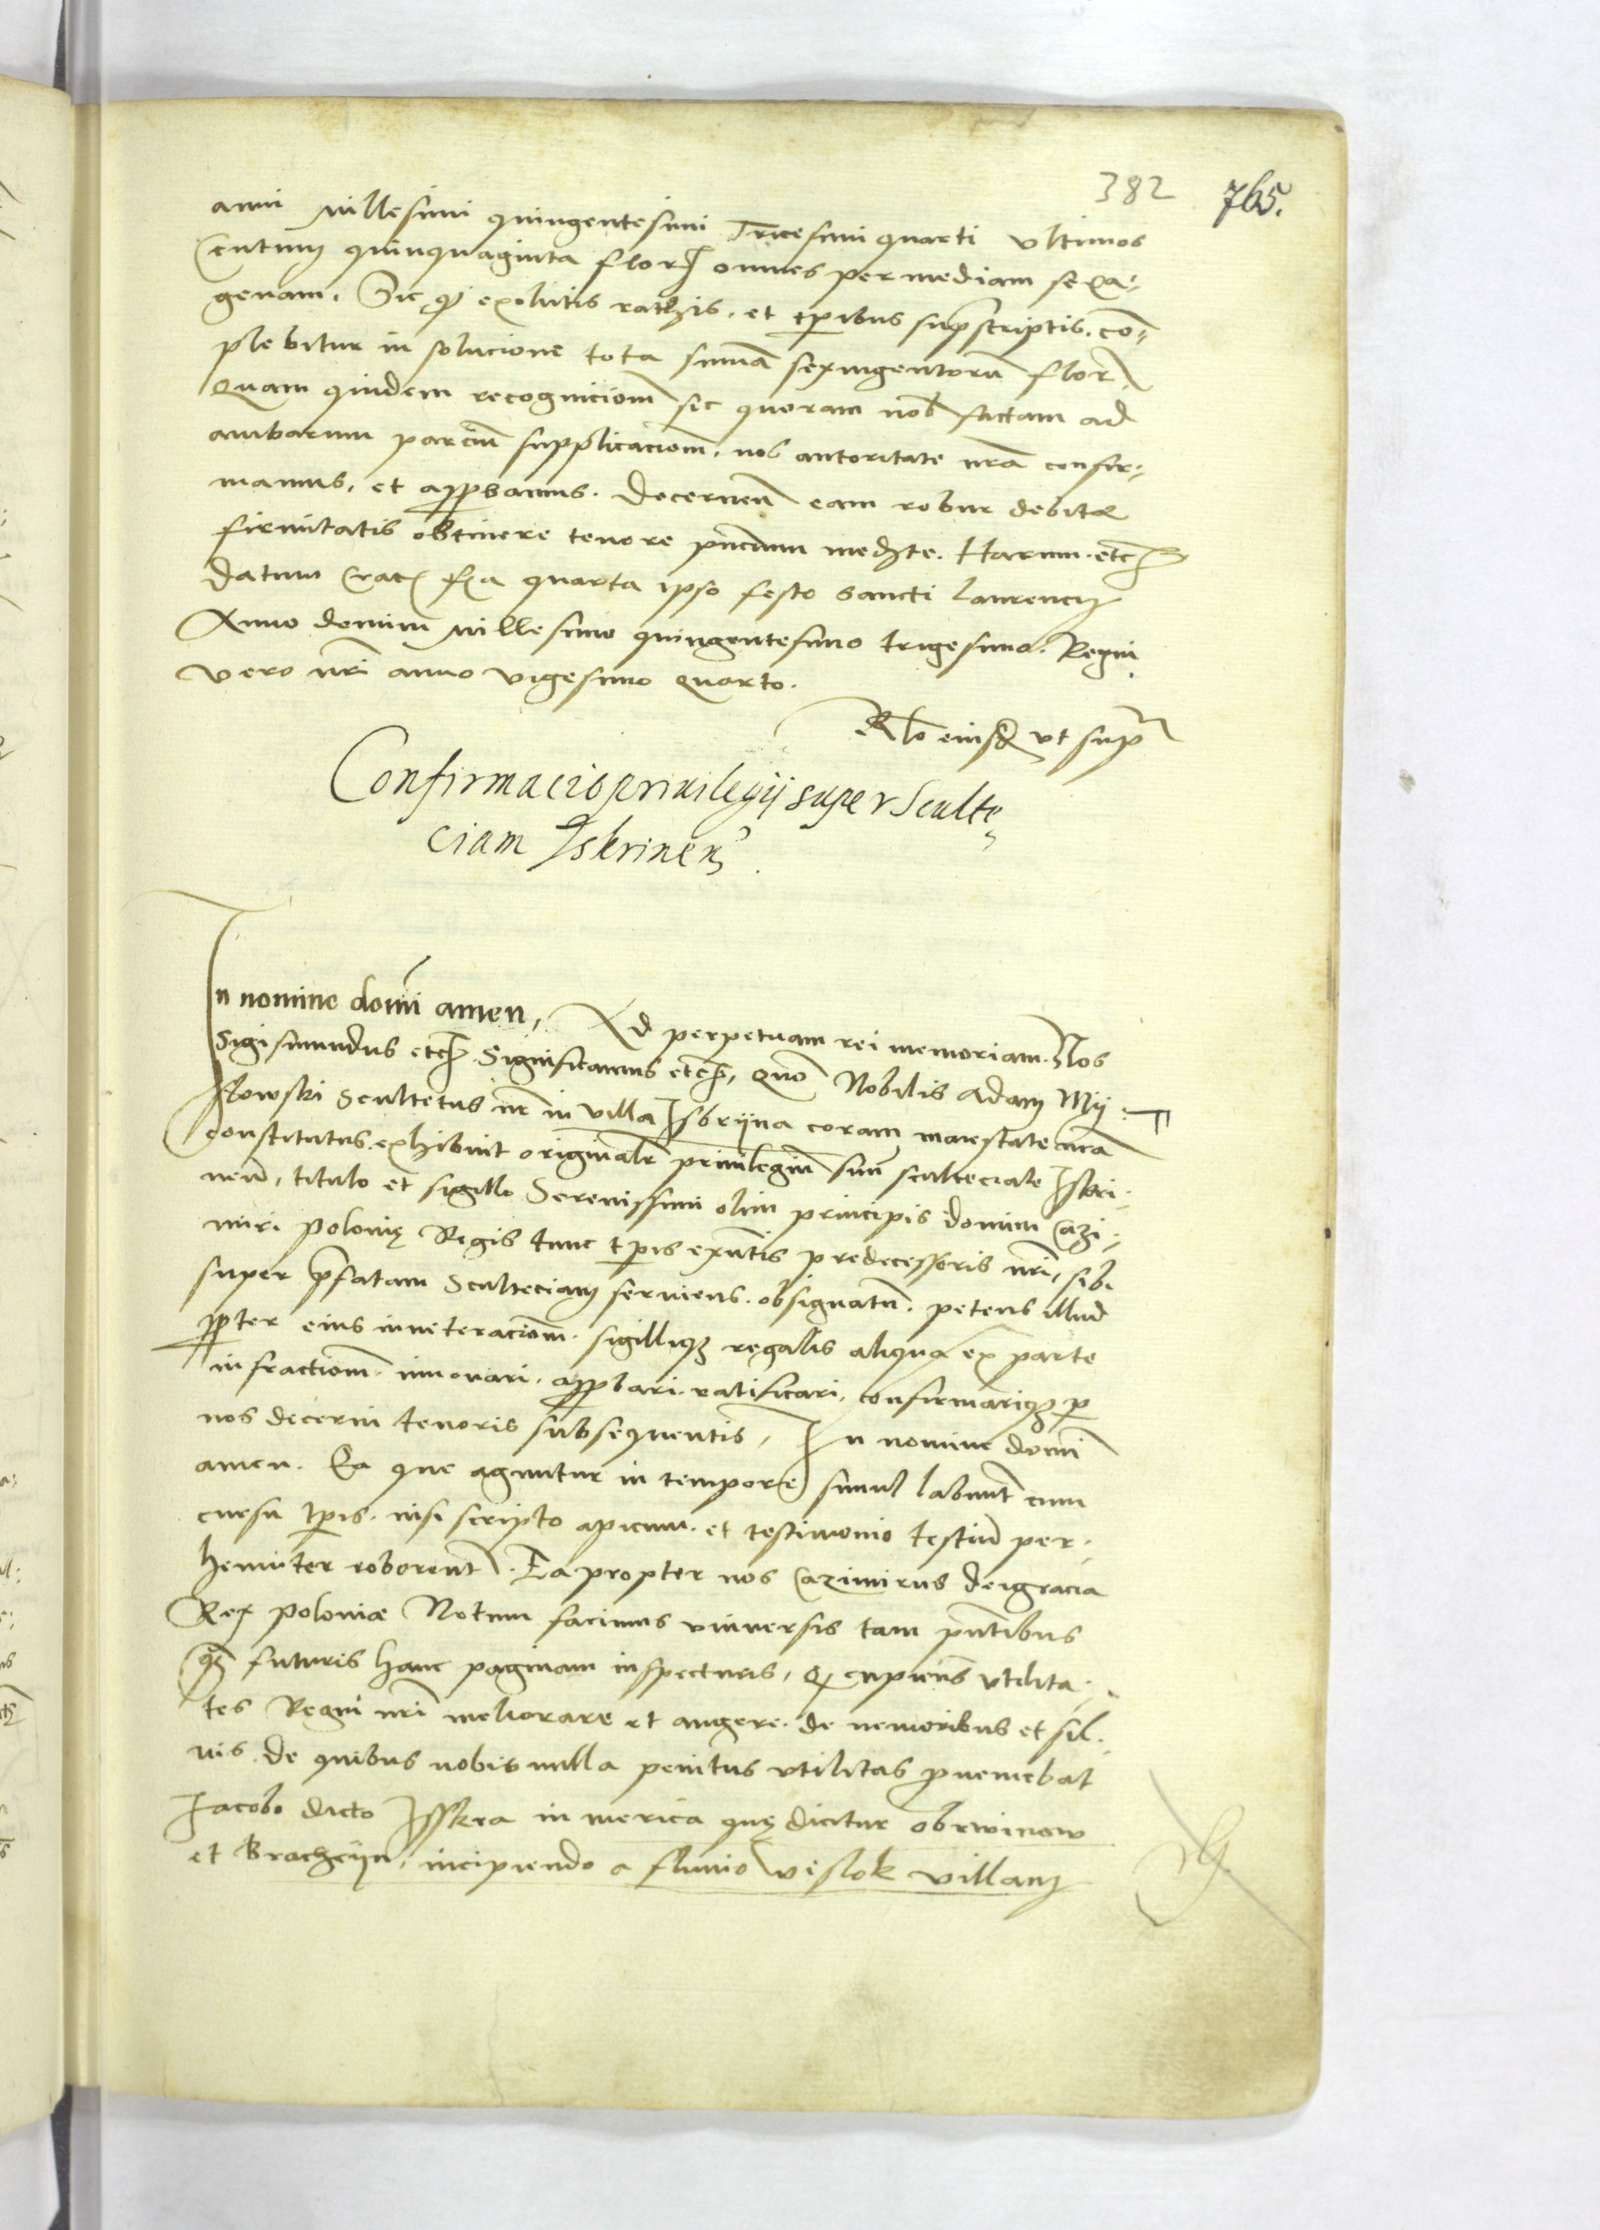 382 765.
anni Millesimi quingentesimi Tricesimi quarti ultimos
Centum quinquaginta flor omnes per mediam sexa⸗
genam. Sic exolutis rathis. et tpibus suprascriptis. co͂⸗
plebitur in solucione tota suma͂ sexingentoru͂ flor
Quam quidem recognicionem sic quoram nob factam ad
ambarum parciu͂ supplicaciom͂. nos autoritate nra͂ confir⸗
mamus. et approbamus. Decernen͂ eam robur debitæ
firmitatis obtinere tenore pn͂cium medte. Harum. etc
Datum Crac fa quarta ipso festo Sancti Laurencii
Anno domini Millesimo quingentesimo trigesimo. Regni
vero nri͂ anno vigesimo quarto.
Rlo eiusd ut supra
Confirmacio privilegij super Sculte
ciam Iskrinen
In nomine domi͂ amen, Ad perpetuam rei memoriam. Nos
Sigismundus etc. Significamus etc, quo Nobilis Adam Mij
slowski Scultetus nr͂ in villa Iskrijna coram maiestate nra͂
constitutus. exhibuit originale͂ privilegiu͂ suu͂ sculteciale Iskri⸗
nen͂, titulo et sigillo Serenissimi olim principis domini Cazi⸗
miri Polonię Regis tunc tpis exnt͂is predecessoris nri͂, sibi
super p͂fatam Sculteciam serviens. obsignatu͂. petens illud
ppter eius inveteraciom͂. sigilliqȝ regalis aliqua ex parte
infractiom͂. innovari. approbari. ratificari. confirmariqȝ p
nos decerni tenoris subsequentis, In nomine domi͂
amen. Ea que aguntur in tempore simul labunt͂ cum
cursu tpis. nisi scripto apicum. et testimonio testiu͂ per⸗
hemniter roborent͂. Ea propter nos Cazimirus dei gracia
Rex Poloniæ Notum facimus universis tam pnt͂ibus
qȝ futuris hanc paginam inspecturis, q cupiens utilita⸗
tes Regni nri͂ meliorare et augere. de nemoribus et sil⸗
vis. de quibus nobis nulla penitus utilitas pveniebat
Jacobo dicto Isskra in merica quę dicitur obrwinow
et Brachcijn, incipiendo a fluvio Wislok villam